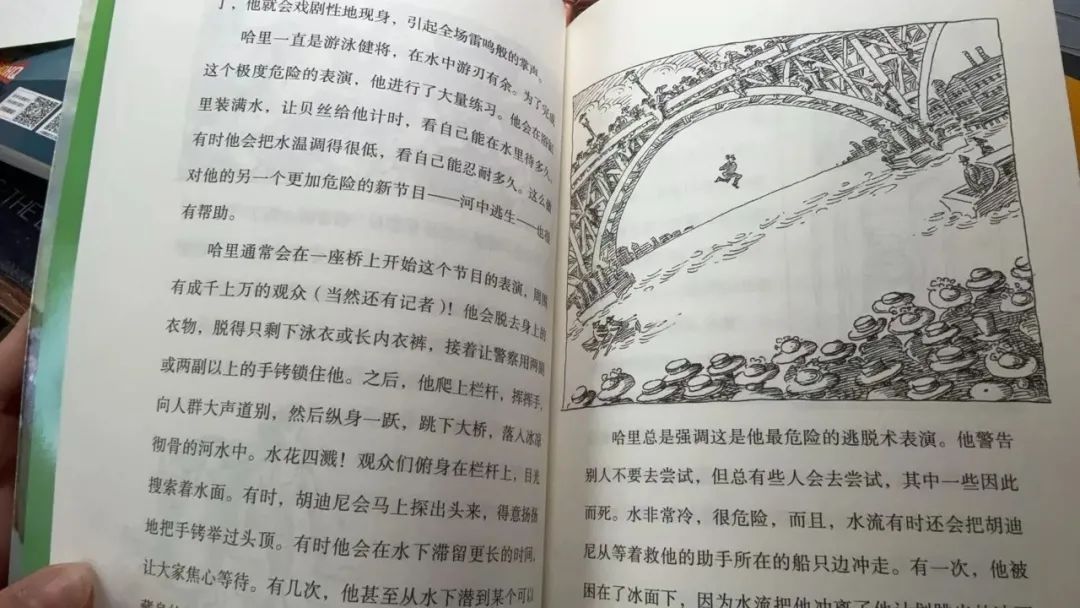 了，他就会戏剧性地现身，引起全场雷鸣般的掌声。
哈里一直是游泳健将，在水中游刃有余。为了完成
这个极度危险的表演，他进行了大量练习。他会在浴缸
里装满水，让贝丝给他计时，看自己能在水里待多久。
有时他会把水温调得很低，看自己能忍耐多久。这么做
对他的另一个更加危险的新节目——河中逃生——也很
有帮助。
哈里通常会在一座桥上开始这个节目的表演，周围
有成千上万的观众（当然还有记者）！他会脱去身上的
衣物，脱得只剩下泳衣或长内衣裤，接着让警察用两副
或两副以上的手铐锁住他。之后，他爬上栏杆，挥挥手，
向人群大声道别，然后纵身一跃，跳下大桥，落入冰凉
彻骨的河水中。水花四溅！观众们俯身在栏杆上，目光
搜索着水面。有时，胡迪尼会马上探出头来，得意扬扬
地把手铐举过头顶。有时他会在水下滞留更长的时间，
让大家焦心等待。有几次，他甚至从水下潜到某个可以
哈里总是强调这是他最危险的逃脱术表演。他警告
别人不要去尝试，但总有些人会去尝试，其中一些因此
而死。水非常冷，很危险，而且，水流有时还会把胡迪
尼从等着救他的助手所在的船只边冲走。有一次，他被
困在了冰面下，因为水流把他冲离了他计划跳